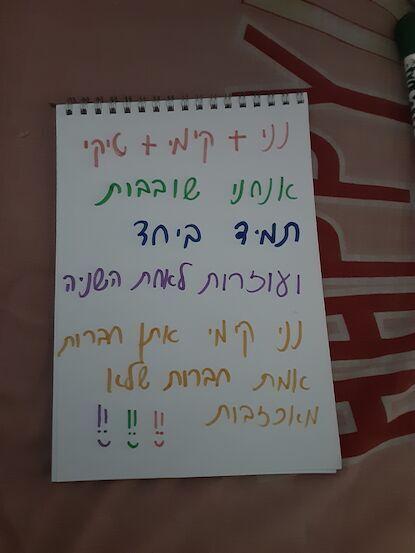 נני + קימי + טיקי
אנחני שובבות
תמיד ביחד
ועוזרות לאחת השניה
נני קימי אתן חברות
אמת חברות שלא
מאכזבות
!! !! !!
HAPPY